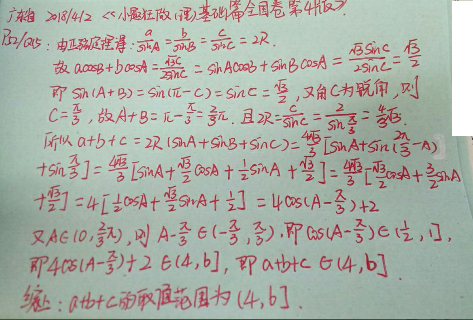 2018/4/2 《小题狂做(理)基础篇全国卷第4版》.
P52/Q15: 由正弦定理得: a/sinA = b/sinB = c/sinC = 2R.
故 acosB+bcosA = √3c/2sinC = sinAcosB+sinBcosA = √3sinC/2sinC = √3/2
即 sin(A+B) = sin(π-C) = sinC = √3/2, 又角C为锐角, 则
C = π/3, 故A+B = π-π/3 = 2/3π. 且 2R = c/sinC = 2/sin π/3 = 4/3√3.
所以 a+b+c = 2R(sinA+sinB+sinC) = 4√3/3[sinA+sin(2π/3-A)
+sin π/3] = 4√3/3[sinA+√3/2cosA+1/2sinA+√3/2] = 4√3/3[√3/2cosA+3/2sinA
+√3/2] = 4[1/2cosA+√3/2sinA+1/2] = 4cos(A-π/3)+2
又A∈(0, 2/3π), 则 A-π/3∈(-π/3, π/3). 即 cos(A-π/3)∈(1/2, 1],
即 4cos(A-π/3)+2 ∈(4, 6], 即 a+b+c ∈(4, 6]
综上: a+b+c的取值范围为(4, 6].